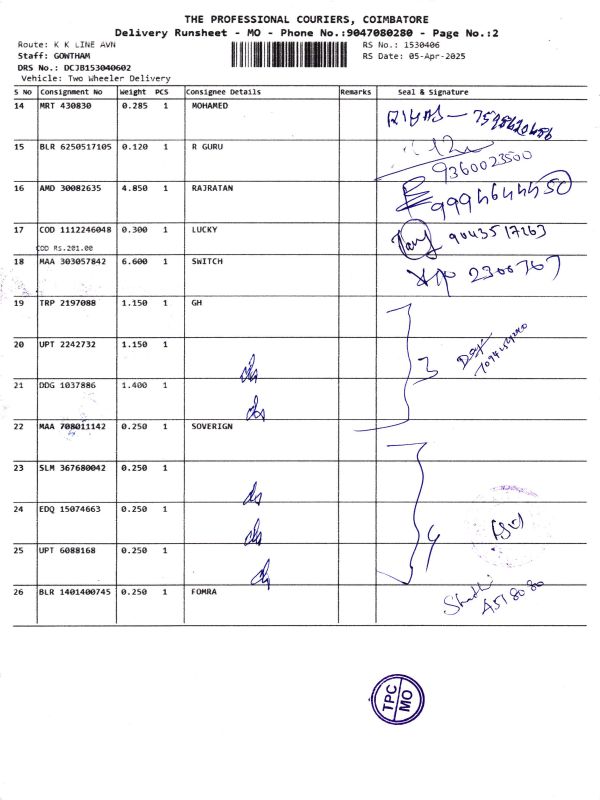 THE PROFESSIONAL COURIERS, COIMBATORE
Delivery Runsheet - MO - Phone No.:9047080280 - Page No.:2
Route: K K LINE AVN
Staff: GOWTHAM
DRS No.: DCJB153040602
Vehicle: Two Wheeler Delivery
RS No.: 1530406
RS Date: 05-Apr-2025
S No Consignment No Weight PCS Consignee Details Remarks Seal & Signature
14 MRT 430830 0.285 1 MOHAMED
15 BLR 6250517105 0.120 1 R GURU 9360023500
16 AMD 30082635 4.850 1 RAJRATAN 9994644450
17 COD 1112246048 0.300 1 LUCKY 9043517263
COD Rs.201.00
18 MAA 303057842 6.600 1 SWITCH 2300767
19 TRP 2197088 1.150 1 GH
20 UPT 2242732 1.150 1 3
21 DDG 1037886 1.400 1
22 MAA 708011142 0.250 1 SOVERIGN
23 SLM 367680042 0.250 1
24 EDQ 15074663 0.250 1 4
25 UPT 6088168 0.250 1
26 BLR 1401400745 0.250 1 FOMRA
TPC
MO